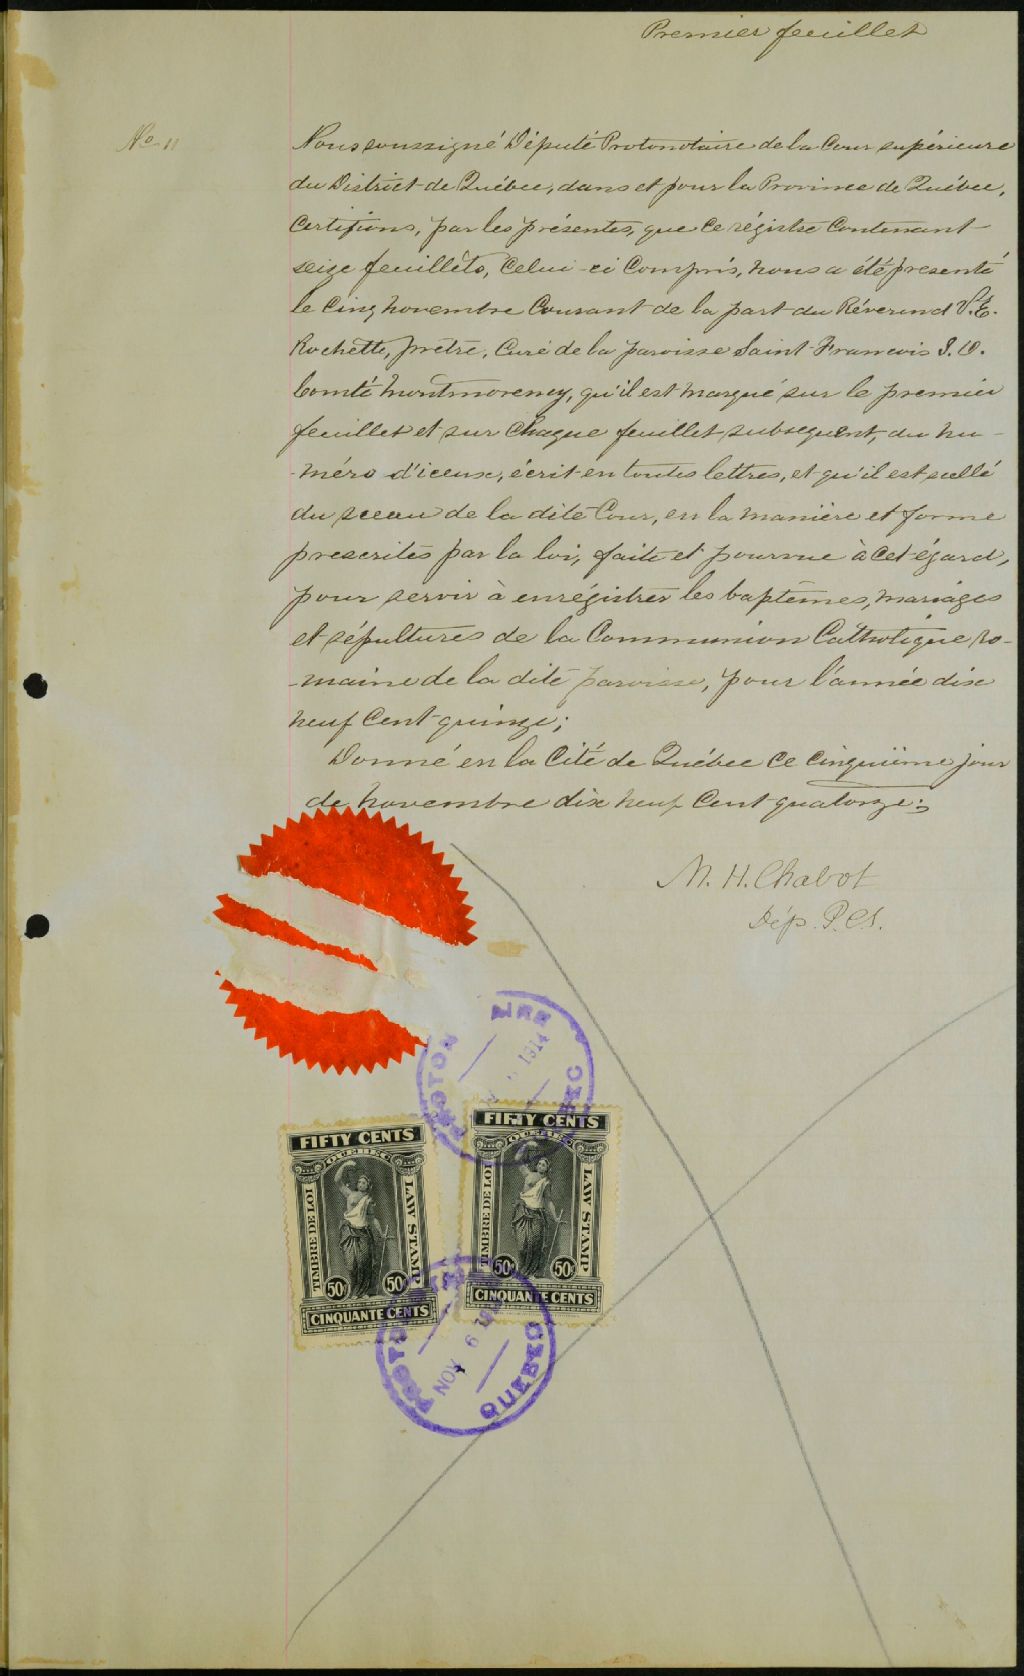 Premier feuillet
No 11
Nous soussigné Député Protonotaire de la Cour supérieure
du District de Québec, dans et pour la Province de Québec,
Certifions, par les présentes, que ce régistre contenant
seize feuillets, celui-ci compris, nous a été presenté
le cinq novembre courant de la part du Révérend
Rochette, prêtre, Curé de la paroisse Saint-Francois I. O.
Comté Montmorency, qu'il est marqué sur le premier
feuillet et sur chaque feuillet subsequent, du nu-
-méro d'iceux, écrit en toutes lettres, et qu'il est scellé
du sceau de la dite Cour, en la manière et forme
prescrites par la loi, faite et pourvue à cet égard,
pour servir à enrégistrer les baptêmes, mariages
et sépultures de la Communion Catholique ro-
-maine de la dite paroisse, pour l'année dix
neuf cent quinze;
Donné en la Cité de Québec ce cinquième jour
de novembre dix neuf cent quatorze;
M. H. Chabot
Dép. P.C.S.
1914
FIFTY CENTS
QUEBEC
TIMBRE DE LOI
LAW STAMP
50¢ 50¢
CINQUANTE CENTS
FIFTY CENTS
QUEBEC
TIMBRE DE LOI
LAW STAMP
50¢ 50¢
CINQUANTE CENTS
NOV 6
QUEBEC